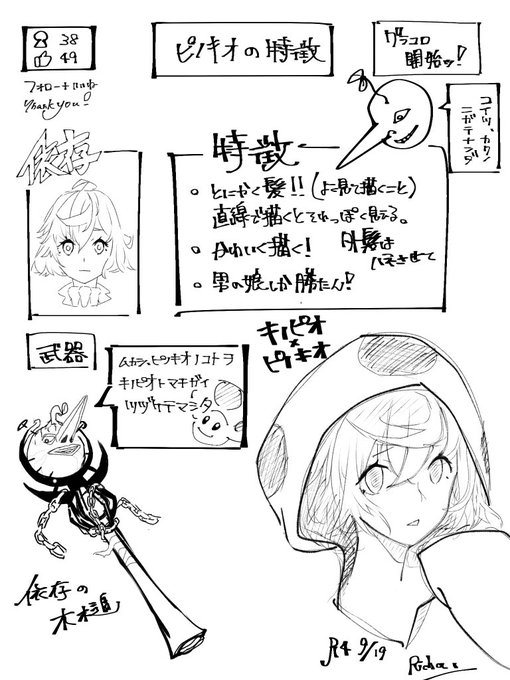 38
49
フォロー+いいね
Thank you!
ピノキオの特徴
グラコロ
開始ッ!
コイツ、カクノ
ニガテナンダ
依存
特徴
とにかく髪!!(よこ見て描くこと)
直線で描くとそれっぽく見える。
かわいく描く! 外髪は
ハネさせて
男の娘しか勝たん!
武器
ムカシ、ピノキオノコトヲ
キノピオトマチガイ
ツヅケテマシタ
キノピオ
×
ピノキオ
依存の
木槌
R4 9/19